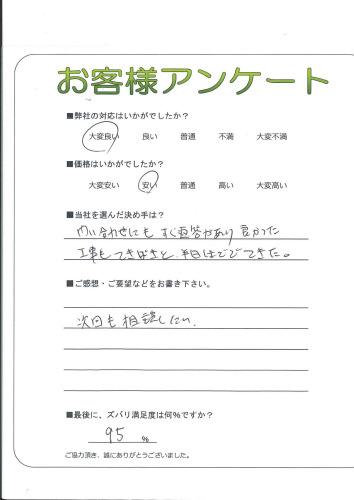 お客様アンケート
■弊社の対応はいかがでしたか？
大変良い 良い 普通 不満 大変不満
■価格はいかがでしたか？
大変安い 安い 普通 高い 大変高い
■当社を選んだ決め手は？
問い合わせにも すぐ返答があり 良かった
工事も てきぱきと、半日 できた。
■ご感想・ご要望などをお書き下さい。
次回も相談したい。
■最後に、ズバリ満足度は何%ですか？
95 %
ご協力頂き、誠にありがとうございました。